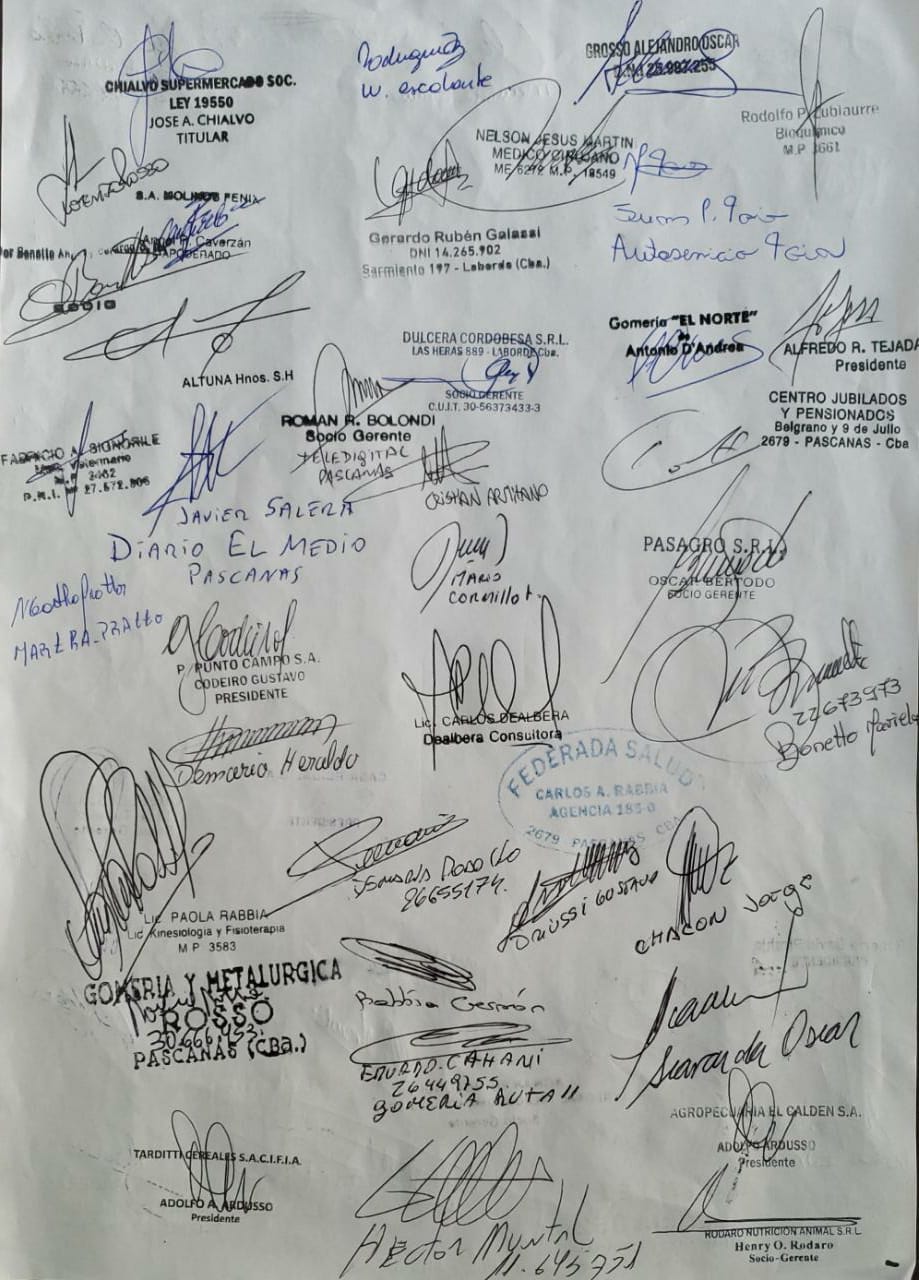 CHIALVO SUPERMERCADO SOC.
LEY 19550
JOSE A. CHIALVO
TITULAR
Rodriguez
W. escalante
GROSSO ALEJANDRO OSCAR
D.N.I 25.982.255
Rodolfo P. Lubiaurre
Bioquímico
M.P 3661
NELSON JESUS MARTIN
MEDICO CIRUJANO
ME 6272 M.P. 18549
S.A. MOLINOS FENIX
Caverzán
APODERADO
SOCIO
Gerardo Rubén Galassi
DNI 14.265.902
Sarmiento 197 - Laborde (Cba.)
Autoservicio
ALTUNA Hnos. S.H
DULCERA CORDOBESA S.R.L.
LAS HERAS 889 - LABORDE Cba.
SOCIO GERENTE
C.U.I.T. 30-56373433-3
Gomería "EL NORTE"
de
Antonio D'Andrea
ALFREDO R. TEJADA
Presidente
CENTRO JUBILADOS
Y PENSIONADOS
Belgrano y 9 de Julio
2679 - PASCANAS - Cba
FABRICIO A. SIGNORILE
ROMAN R. BOLONDI
Socio Gerente
TELEDIGITAL
PASCANAS
JAVIER SALERA
DIARIO EL MEDIO
PASCANAS
CRISTIAN ARMITANO
MARIO
CORMILLOT
PASAGRO S.R.L.
OSCAR BERTODO
SOCIO GERENTE
P/ PUNTO CAMPO S.A.
CODEIRO GUSTAVO
PRESIDENTE
Lic. CARLOS DEALBERA
Dealbera Consultora
22673973
Bonetto Mariela
Demaria Heraldo
FEDERADA SALUD
CARLOS A. RABBIA
AGENCIA 185-0
2679 PASCANAS CBA
26655174.
DRIUSSI GUSTAVO
CHACON Jorge
Lic. PAOLA RABBIA
Lic. Kinesiología y Fisioterapia
M P 3583
GOMERIA Y METALURGICA
ROSSO
30.666.453.
PASCANAS (CBa.)
Rabbia Germán
EDUARDO.CAHANI
26449755
GOMERIA RUTA 11
Oscar
AGROPECUARIA EL CALDEN S.A.
ADOLFO ARDUSSO
Presidente
TARDITTI CEREALES S.A.C.I.F.I.A.
ADOLFO A. ARDUSSO
Presidente
Héctor
11.645.751
RODARO NUTRICION ANIMAL S.R.L.
Henry O. Rodaro
Socio-Gerente